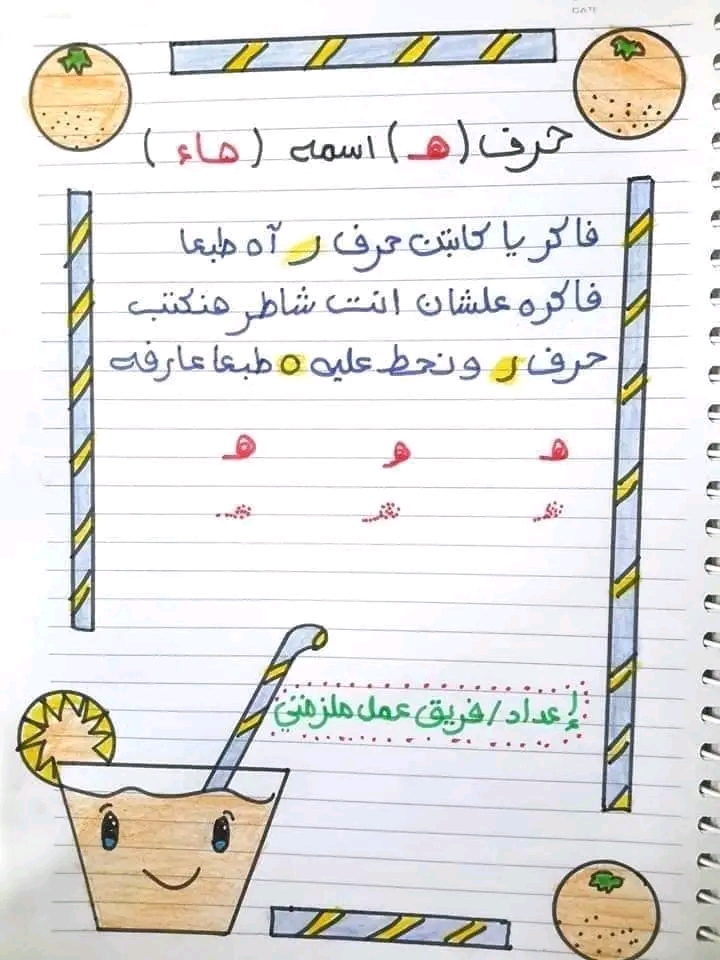 حرف (هـ) اسمه (هاء)
فاكر يا كابتن حرف ر آه طبعا
فاكره علشان انت شاطر هنكتب
حرف ر ونحط عليه ه طبعا عارفه
هـ هـ هـ
هـ هـ هـ
إعداد/فريق عمل ملزمتي